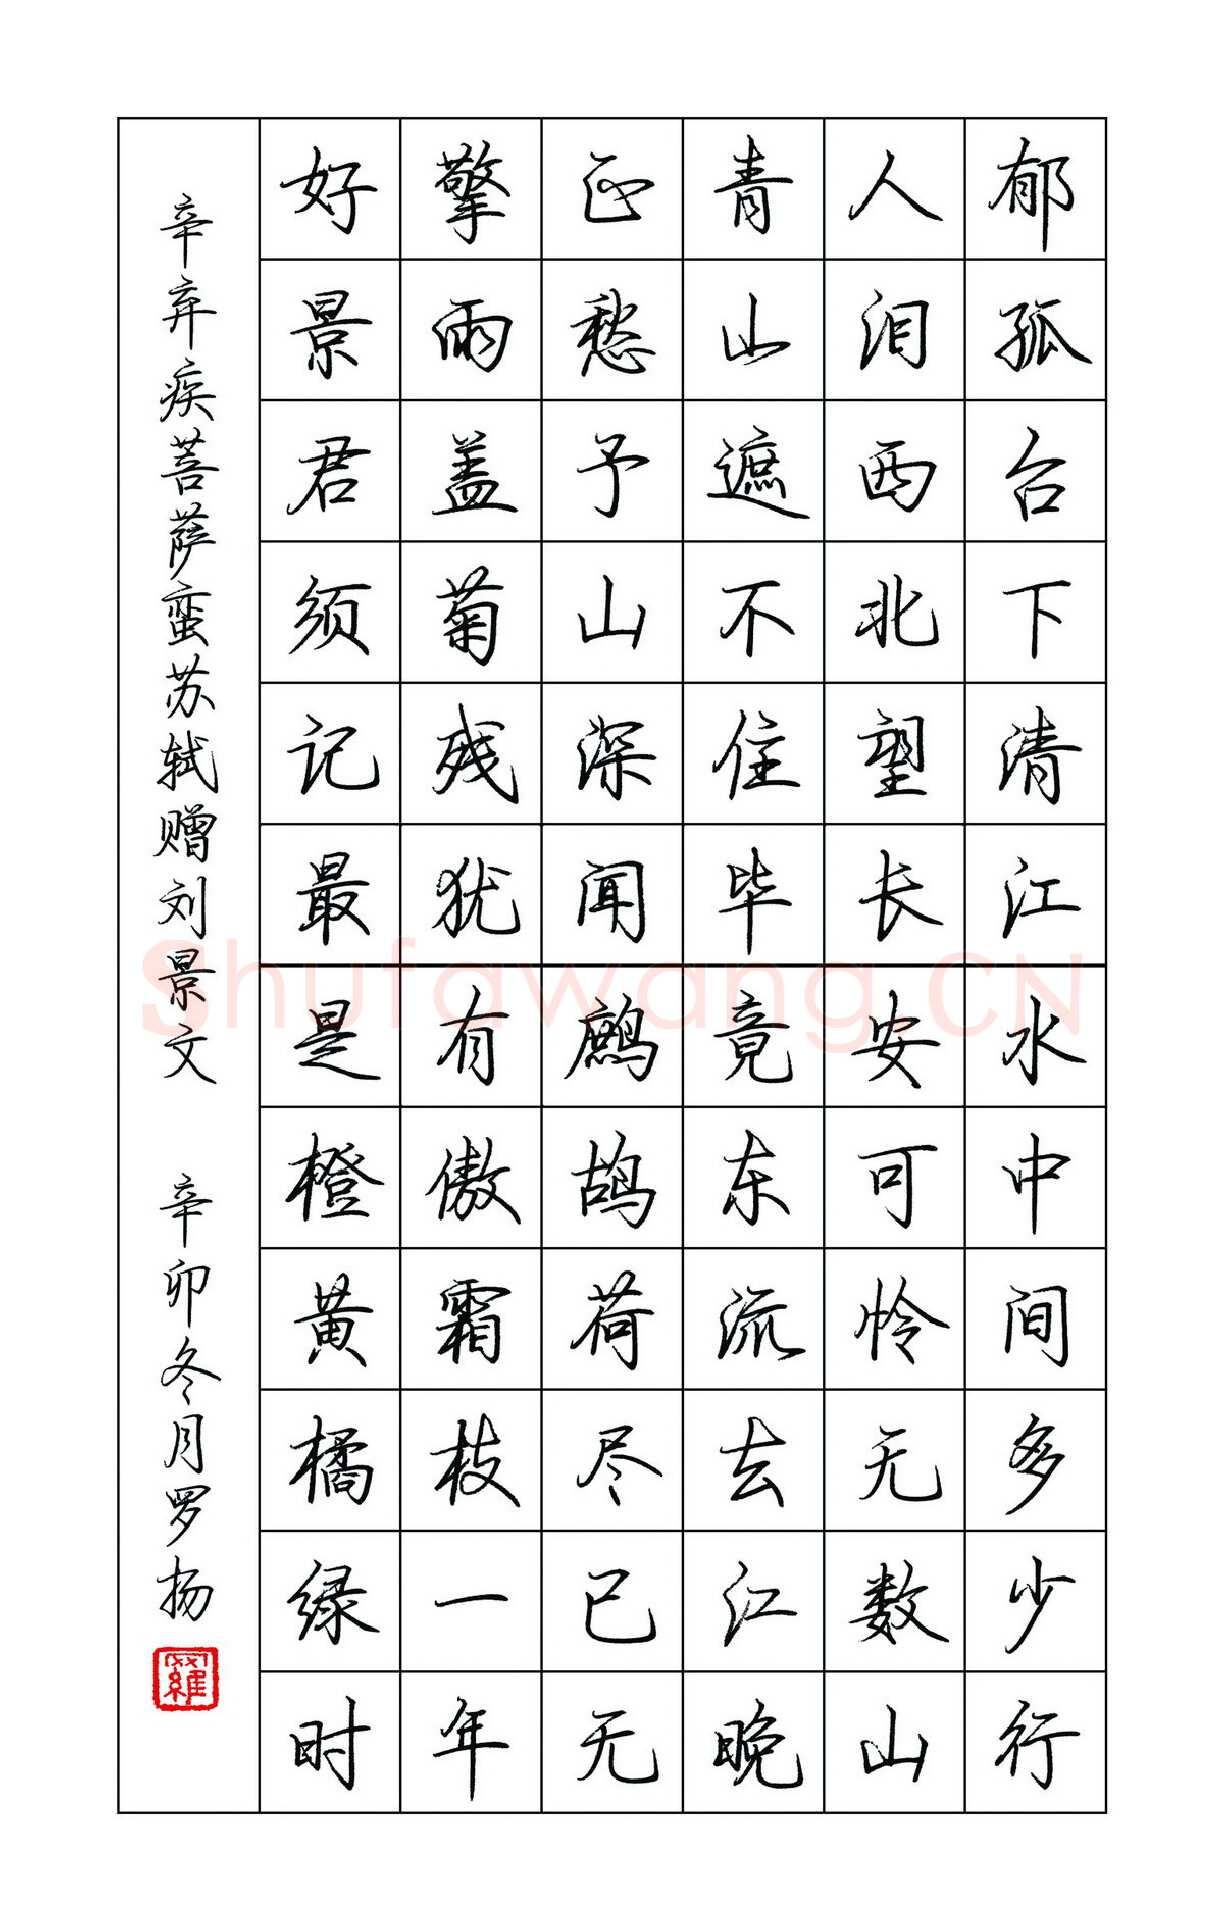 郁孤台下清江水中间多少行
人泪西北望长安可怜无数山
青山遮不住毕竟东流去江晚
正愁予山深闻鹧鸪荷尽已无
擎雨盖菊残犹有傲霜枝一年
好景君须记最是橙黄橘绿时
辛弃疾菩萨蛮苏轼赠刘景文 辛卯冬月罗扬
羅
Shufawang.CN